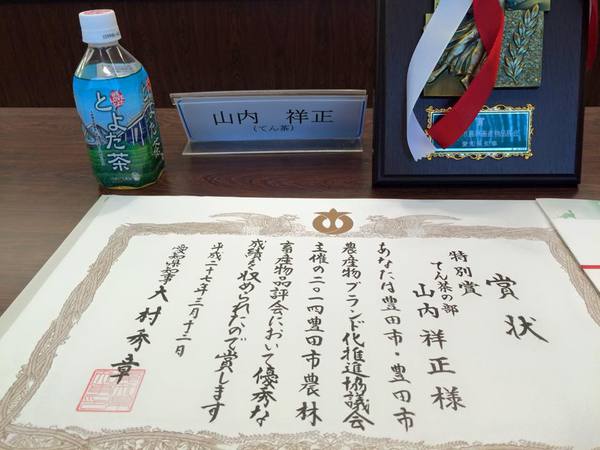 とよだ茶
山内 祥正
(てん茶)
賞状
特別賞
てん茶の部
山内祥正様
あなたは豊田市・豊田市
農産物ブランド化推進協議会
主催の二〇一四豊田市農林
畜産物品評会において優秀な
成績を収められたので賞します
平成二十七年三月十二日
愛知県知事 大村秀章